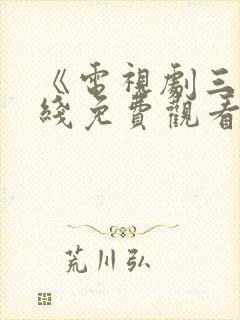 《電視劇三
綫免費觀看
荒川弘